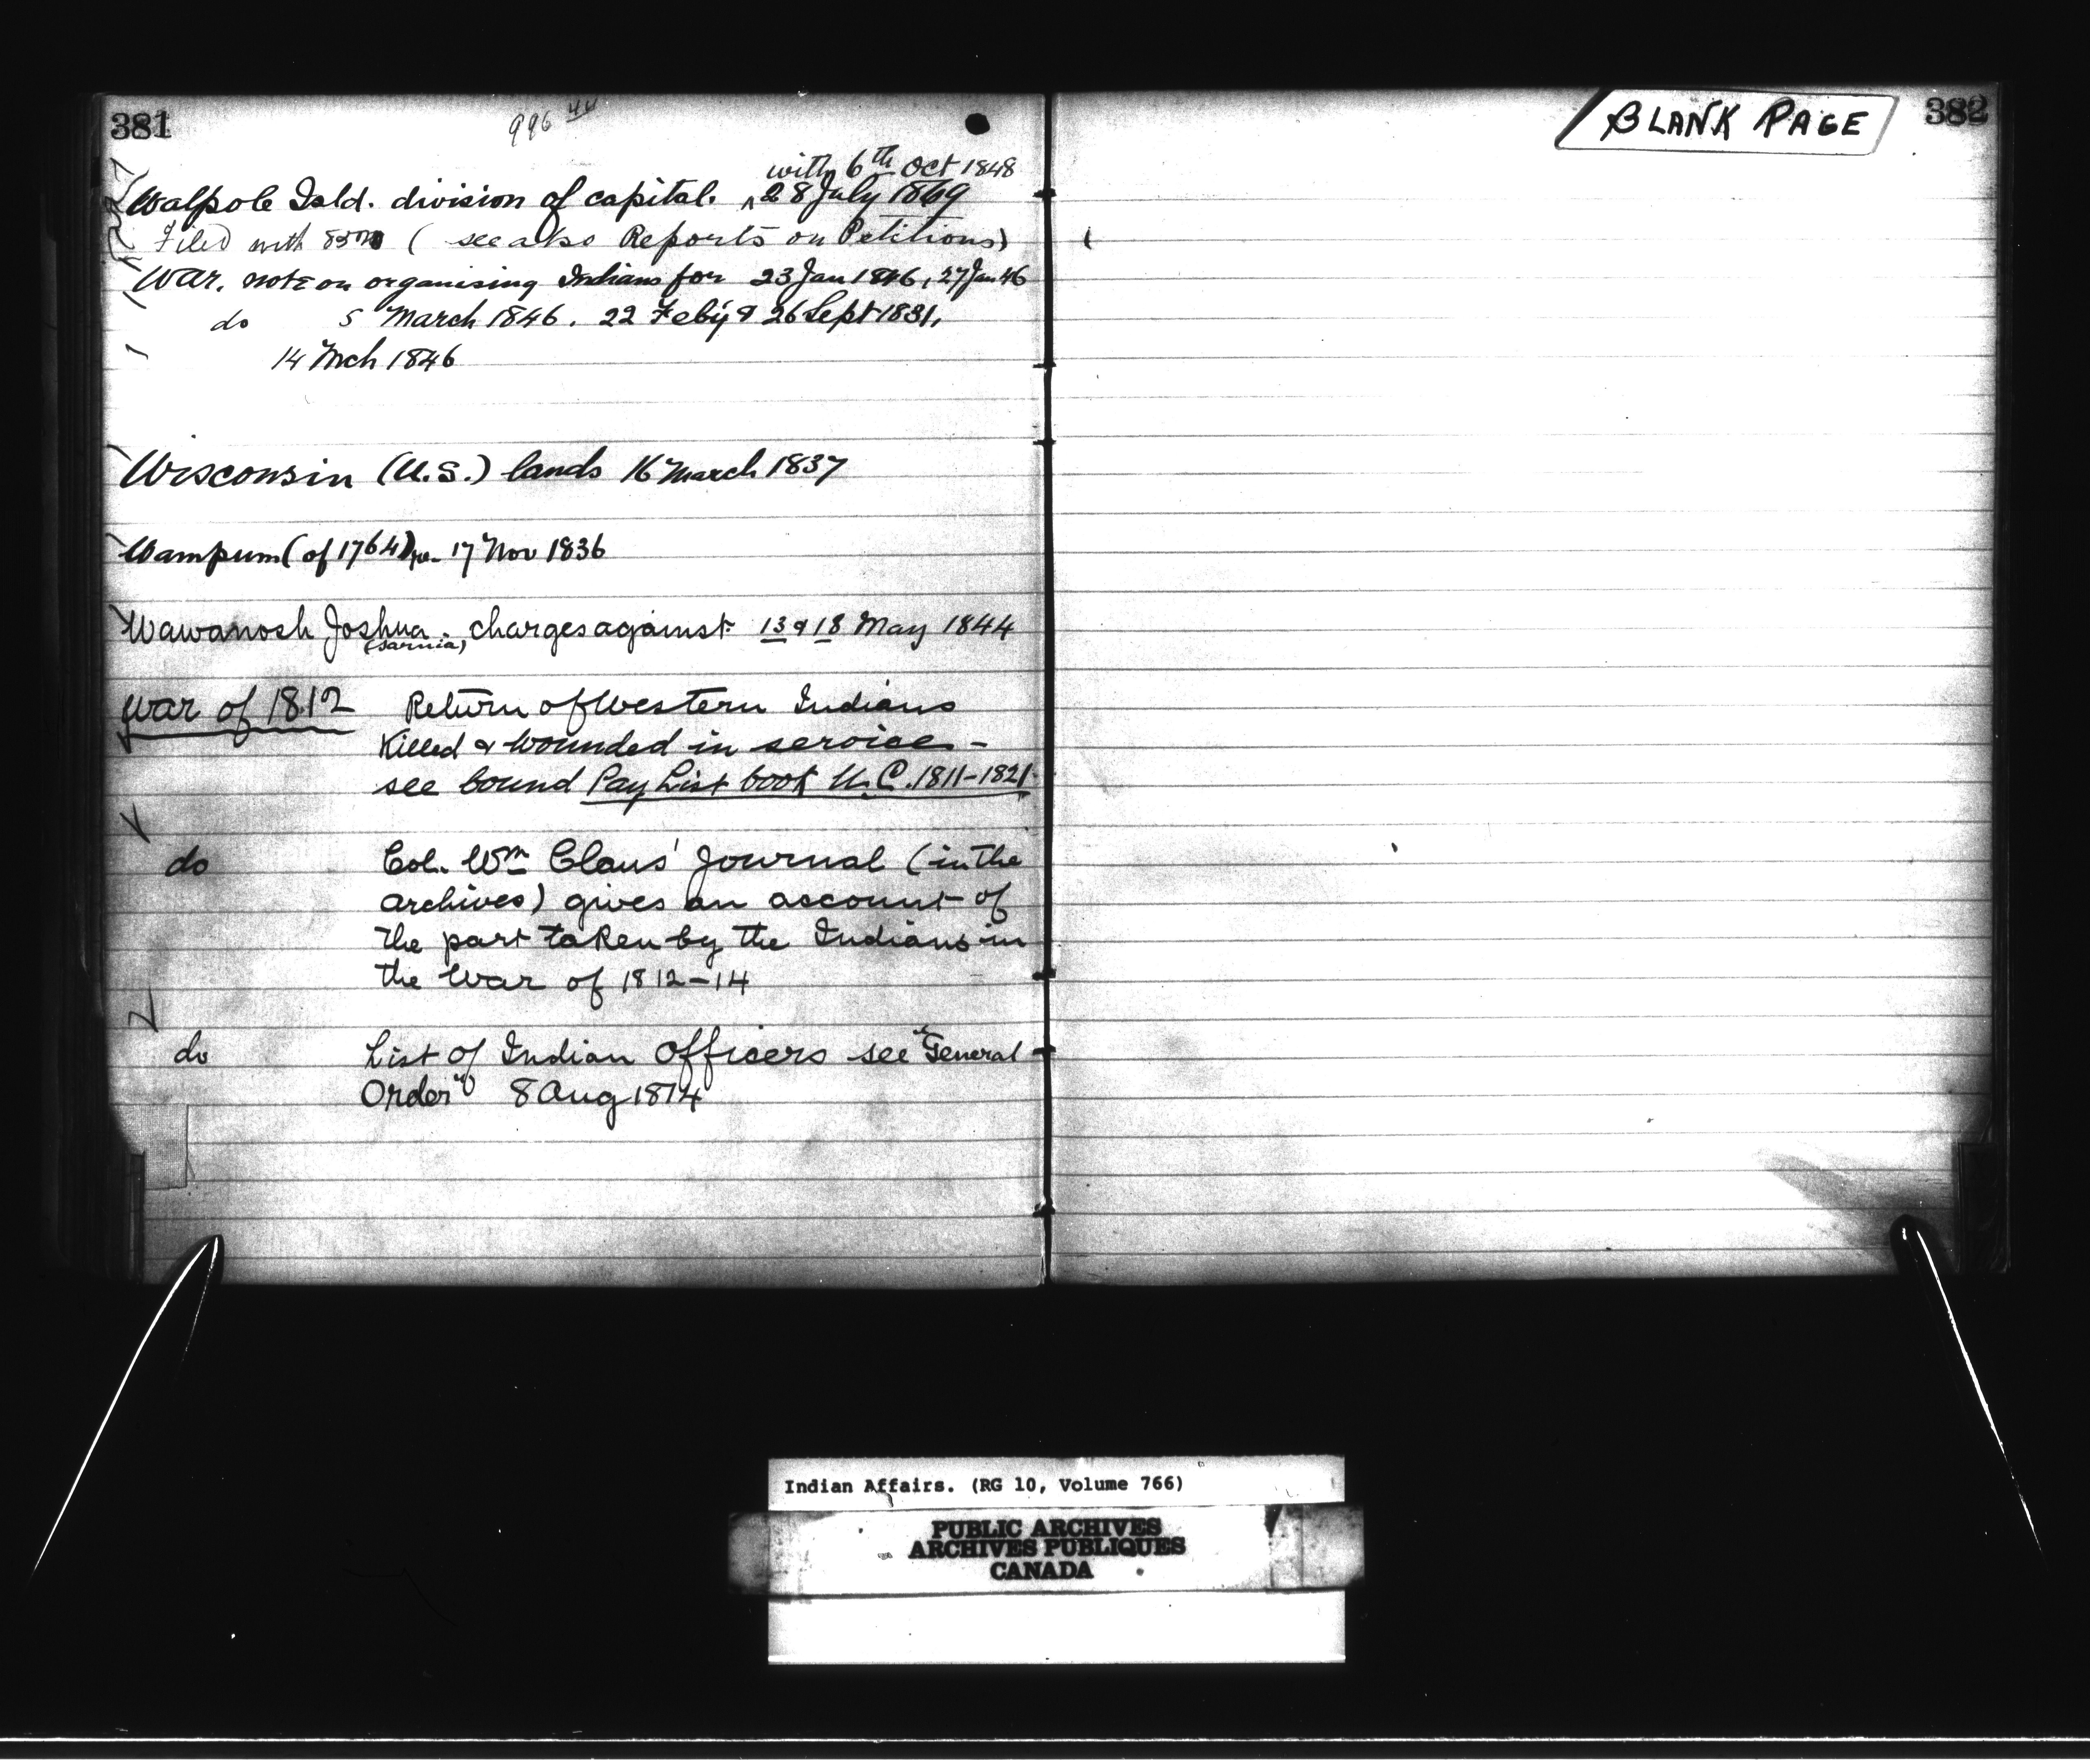 381
996 44
with 6th Oct 1848
Walpole Isld. division of capital. ^ 28 July 1869
Filed with ( see also Reports on Petitions)
War. note on organising Indians for 23 Jan 1846, 27 Jan 46
do 5 March 1846. 22 Feby & 26 Sept 1831,
14 Mch 1846
Wisconsin (U.S.) lands 16 March 1837
Wampum (of 1764) re. 17 Nov 1836
Wawanosh Joshua. charges against 13 & 18 May 1844
(Sarnia)
War of 1812 Return of Western Indians
Killed & Wounded in service -
see bound Pay List book U.C. 1811-1821.
do Col. Wm Claus' Journal (in the
archives) gives an account of
the part taken by the Indians in
the War of 1812-14
do List of Indian Officers see "General
Order" 8 Aug 1814
382
BLANK PAGE
Indian Affairs. (RG 10, Volume 766)
PUBLIC ARCHIVES
ARCHIVES PUBLIQUES
CANADA